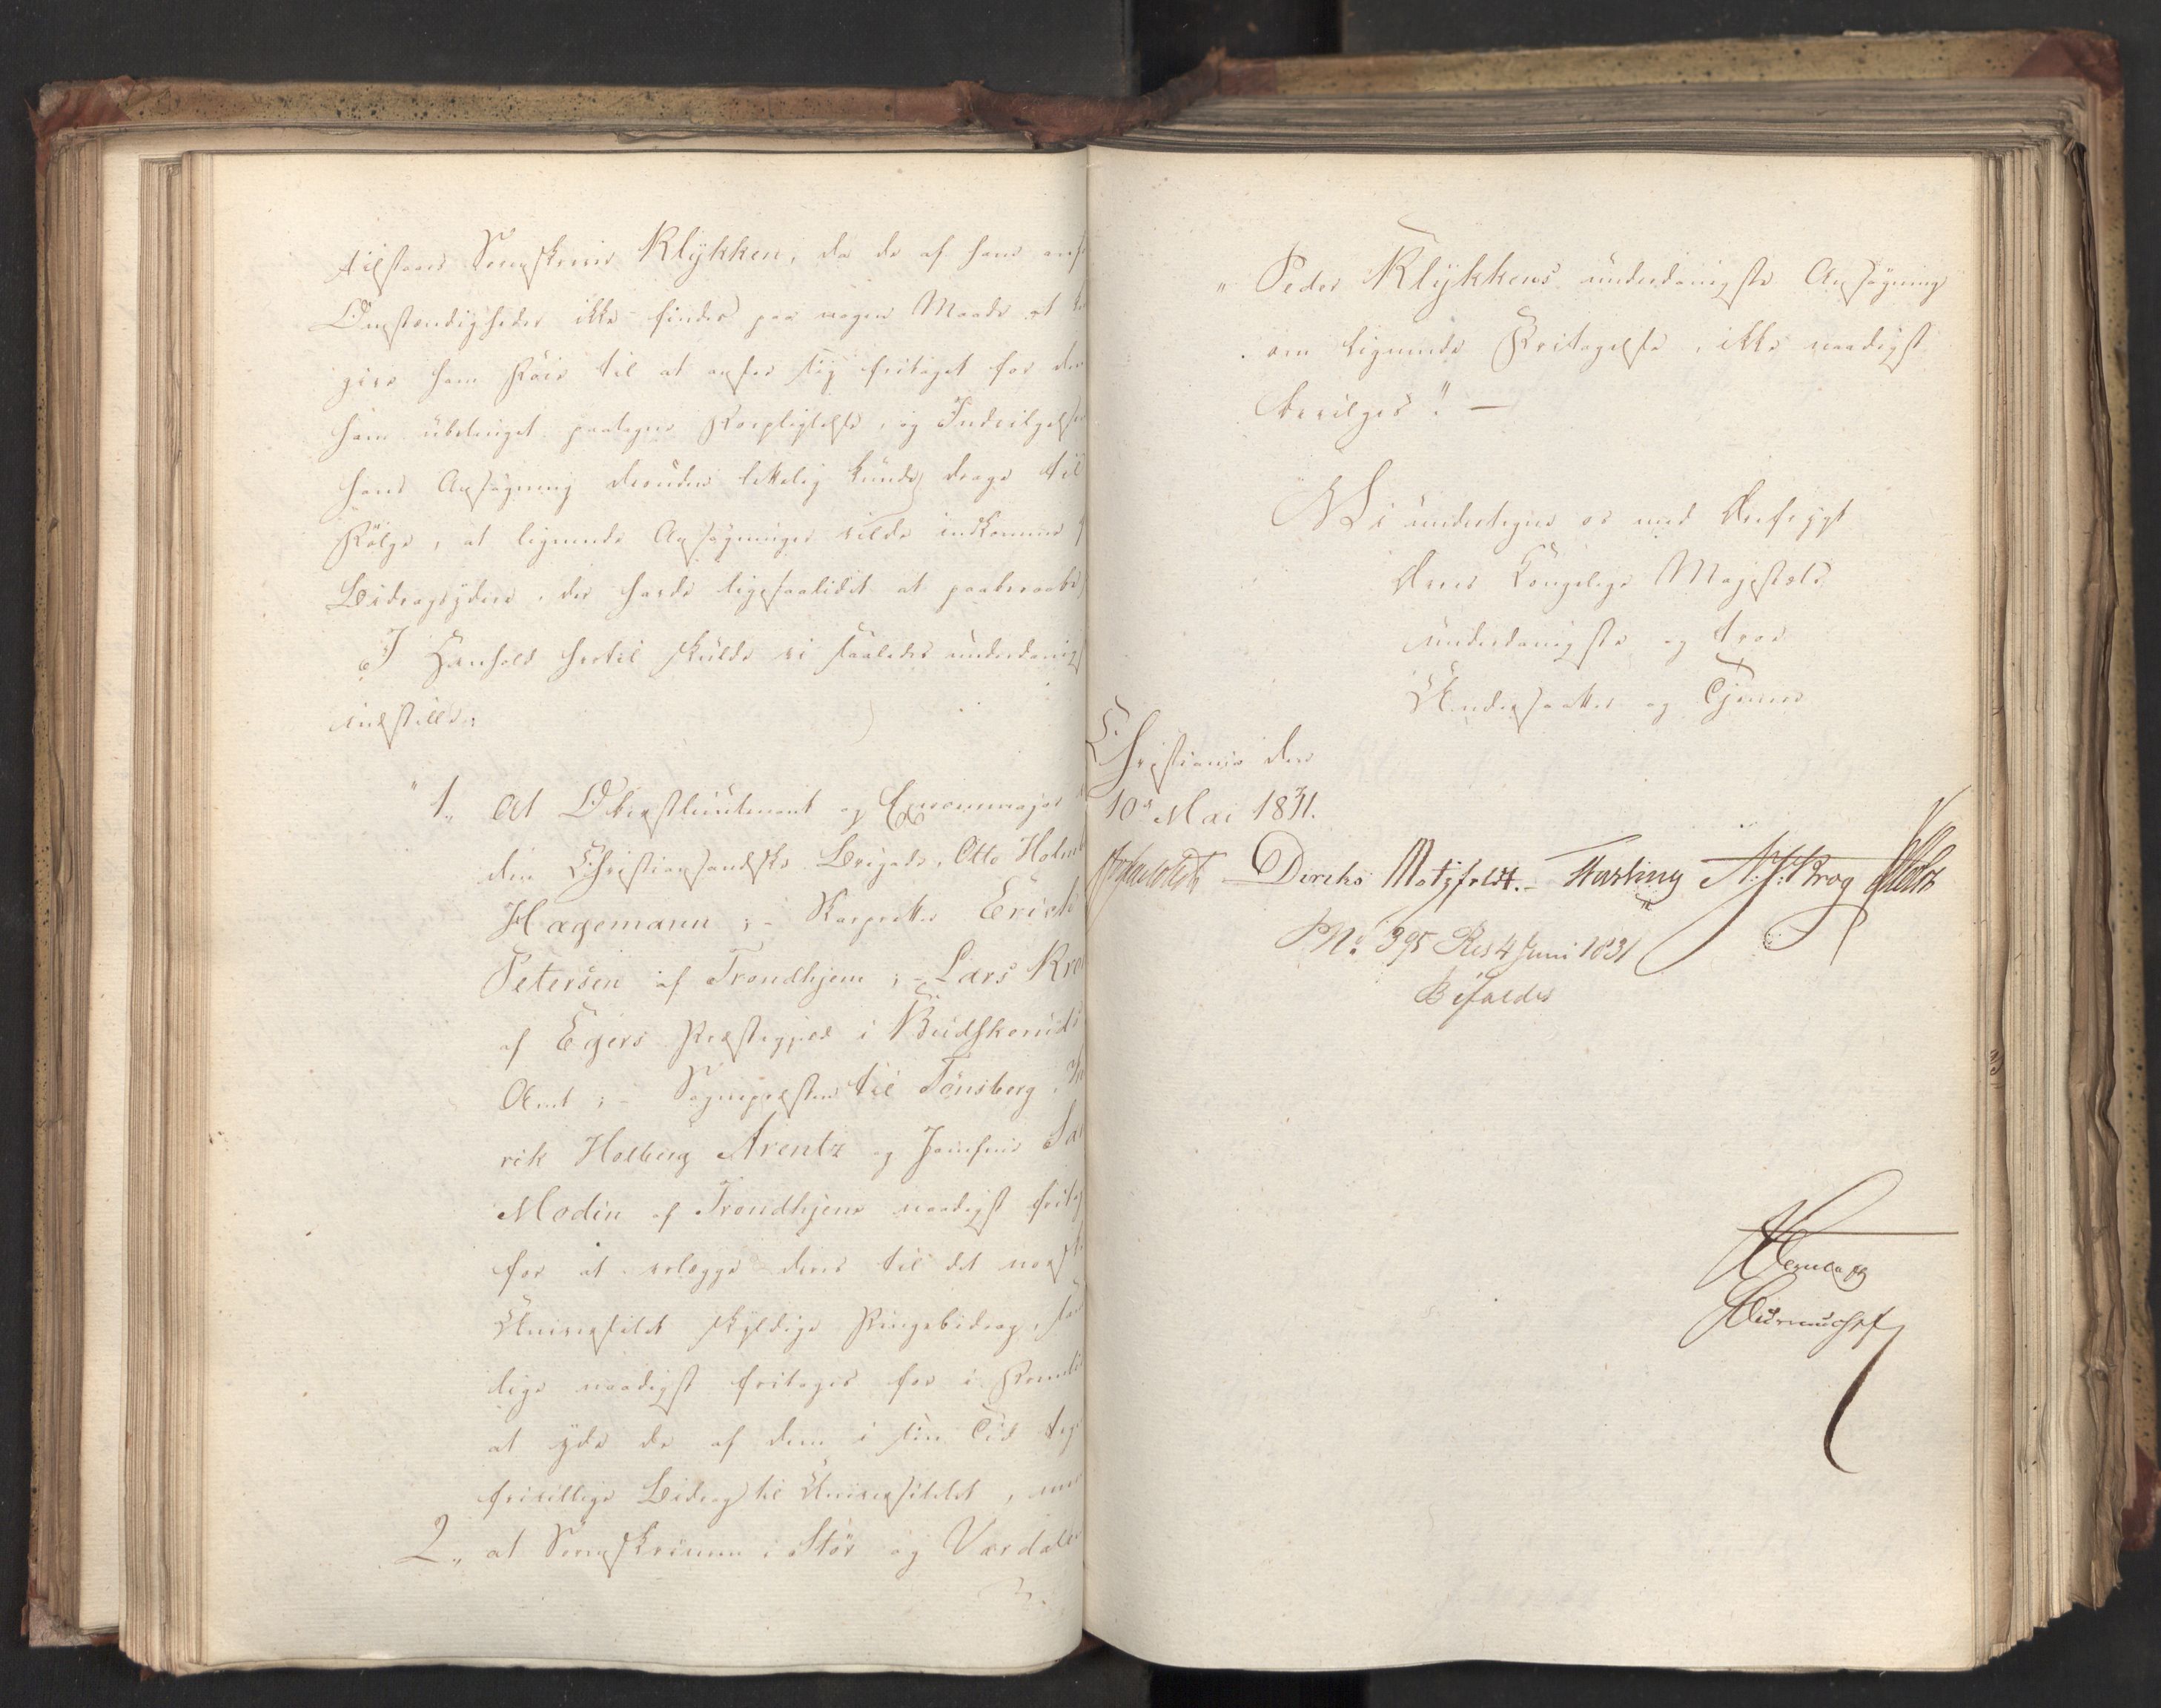 tilstaaes Sorenskriver Klykken, da de af ham anf
Omstændigheder ikke findes paa nogen Maade at
give ham Føie til at ansee sig fritaget for den
ham ubetinget paalagte Forpligtelse, og Indvilgelsen
hans Ansøgning desuden lettelig kunde drage til
Følge, at lignende Ansøgninger vilde indkomme
Bidragsydere, der havde ligesaalidet at paaberaabe
I Henhold hertil skulde vi saaledes underdanigst
indstille:
"1., at Oberstlieutenant og Exermajor
den Christiansandske Brigade, Otto Holm
Hagemann; - Skarpretter Erich
Petersen af Trondhjem; - Lars Kro
af Egers Præstegjeld i Budskeruds
Amt; - Sognepræsten til Tønsberg
rik Holberg Arentz og Jomfrue Sa
Modin af Trondhjem naadigst fritag
for at erlægge deres til det norske
Universitet skyldige Pengebidrag,
lige naadigst fritages for i Fremtid
at yde de af dem i sin Tid
frivillige Bidrag til Universitetet, men
2., at Sorenskriveren i Stør og Værdalen
" Peder Klykkens underdanigste Ansøgning
om lignende Fritagelse, ikke naadigst
bevilges". —
Vi undertegne os med Ærefrygt
Deres Kongelige Majestæts
underdanigste og troe
Undersaatter og Tjenere
Christiania den
10de Mai 1831.
Diriks Motzfeldt. - Fasting Krog Holst
No. 395 Res 4 Juni 1831
Bifaldes